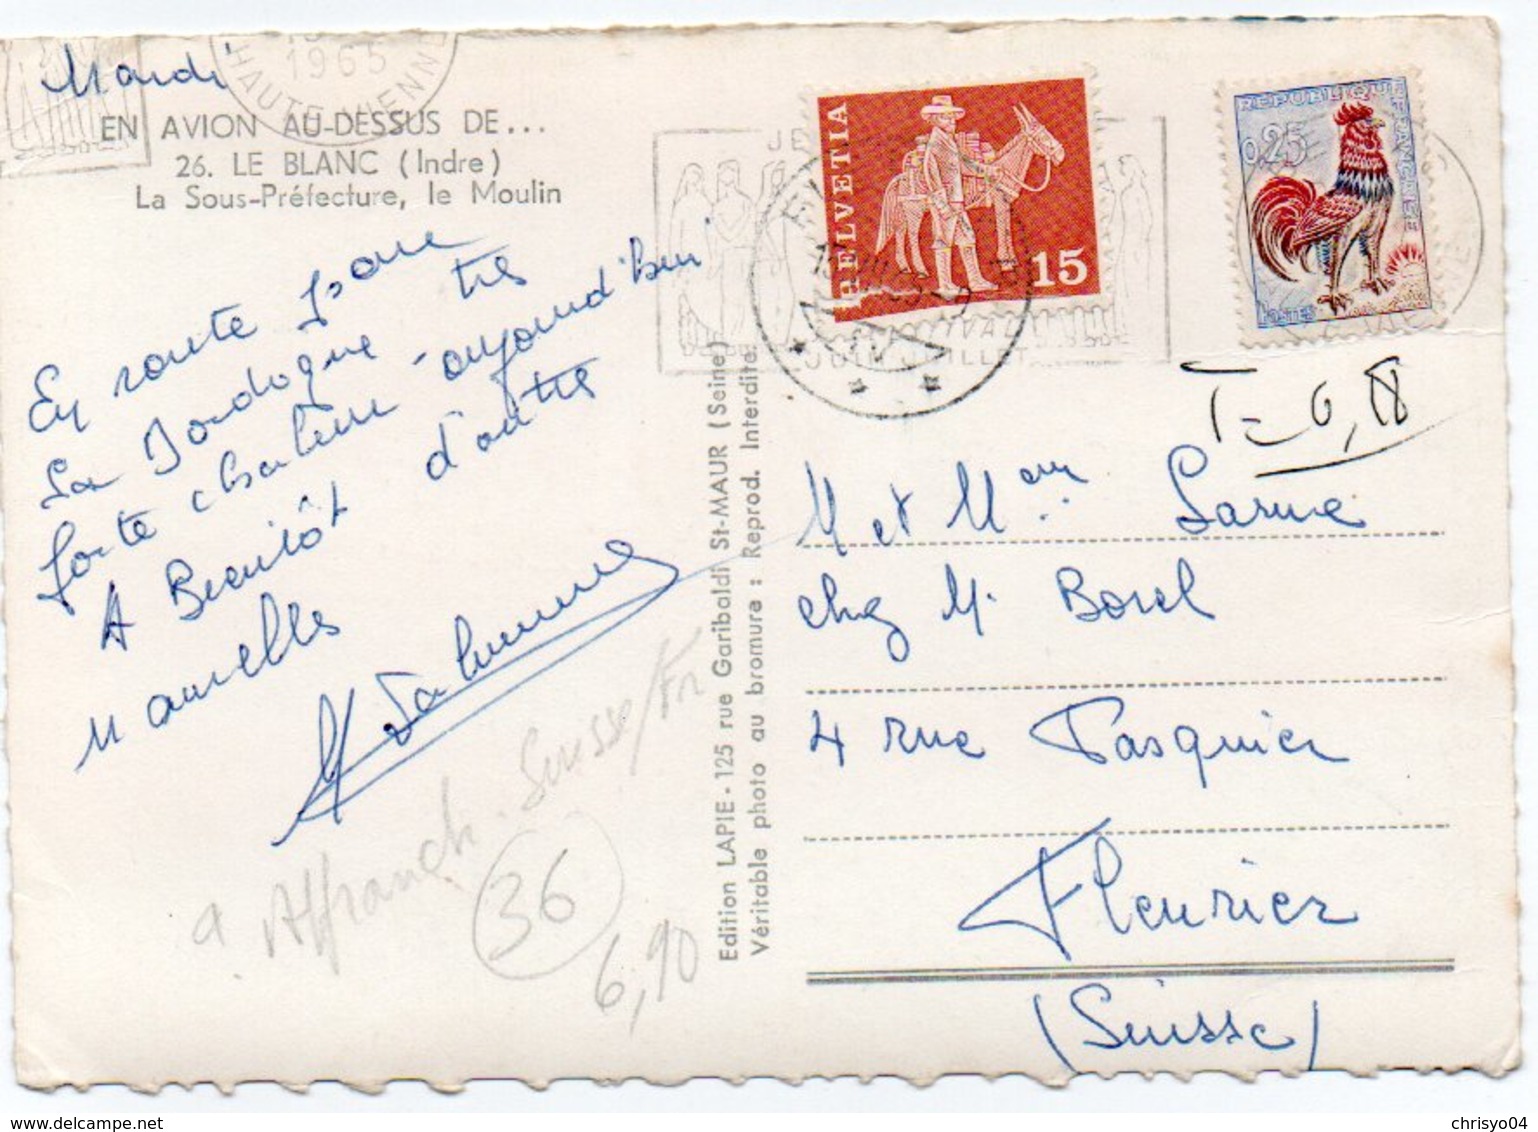 Mardi
1965
HAUTE-VIENNE
EN AVION AU-DESSUS DE...
26. LE BLANC (Indre)
La Sous-Préfecture, le Moulin
En route pour
La Dordogne très
forte chaleur aujourd'hui
A Bientôt d'autres
nouvelles
Affranch. Suisse/Fr
36
6,90
Edition LAPIE - 125 rue Garibaldi St-MAUR (Seine)
Véritable photo au bromure : Reprod. Interdite
HELVETIA
15
REPUBLIQUE FRANÇAISE
0,25
POSTES
JUIN JUILLET
T= 0,18
M et Mme
chez M. Borel
4 rue Pasquier
Fleurier
(Suisse)
chrisyo04